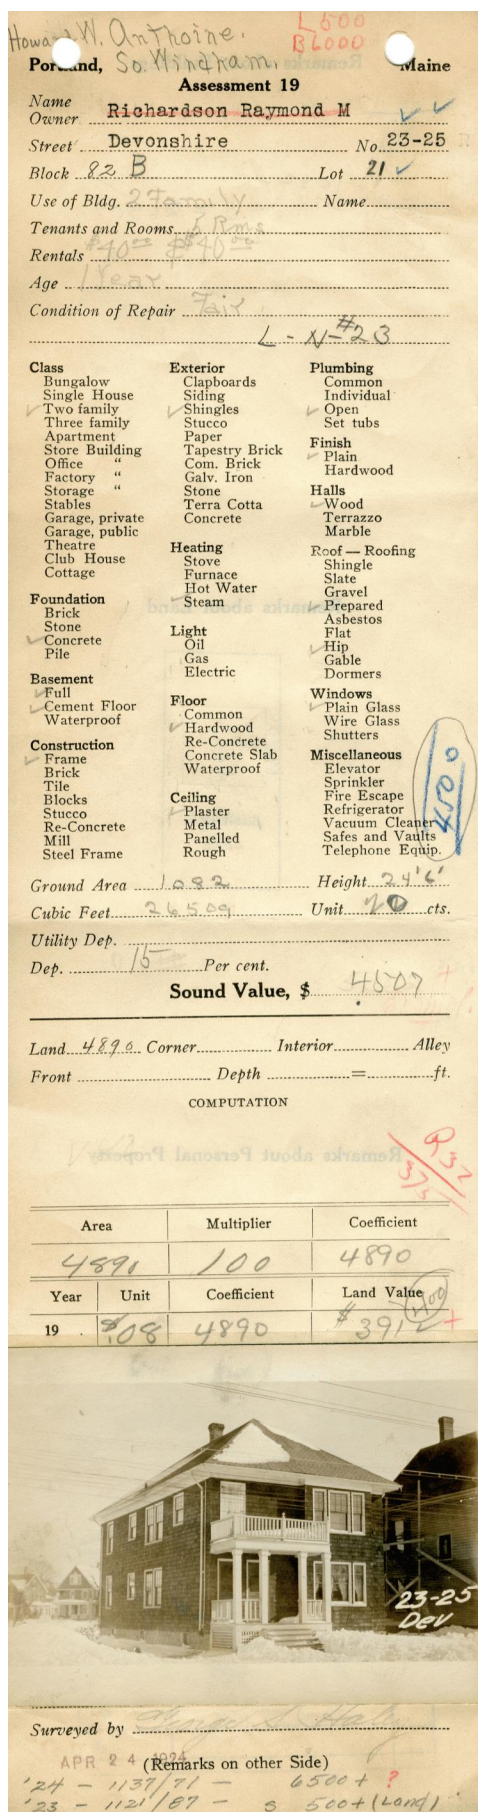 Howard W. Anthoine.
So. Windham.
L 500
B 6000
Portland, Maine
Assessment 19
Name
Owner Richardson Raymond M
Street Devonshire No. 23-25
Block 82 B Lot 21
Use of Bldg. 2 Family Name
Tenants and Rooms 5 Rms
Rentals $40.00 $40.00
Age 1 Year
Condition of Repair Fair
L - N - #23
Class
Bungalow
Single House
Two family
Three family
Apartment
Store Building
Office "
Factory "
Storage "
Stables
Garage, private
Garage, public
Theatre
Club House
Cottage
Foundation
Brick
Stone
Concrete
Pile
Basement
Full
Cement Floor
Waterproof
Construction
Frame
Brick
Tile
Blocks
Stucco
Re-Concrete
Mill
Steel Frame
Exterior
Clapboards
Siding
Shingles
Stucco
Paper
Tapestry Brick
Com. Brick
Galv. Iron
Stone
Terra Cotta
Concrete
Heating
Stove
Furnace
Hot Water
Steam
Light
Oil
Gas
Electric
Floor
Common
Hardwood
Re-Concrete
Concrete Slab
Waterproof
Ceiling
Plaster
Metal
Panelled
Rough
Plumbing
Common
Individual
Open
Set tubs
Finish
Plain
Hardwood
Halls
Wood
Terrazzo
Marble
Roof — Roofing
Shingle
Slate
Gravel
Prepared
Asbestos
Flat
Hip
Gable
Dormers
Windows
Plain Glass
Wire Glass
Shutters
Miscellaneous
Elevator
Sprinkler
Fire Escape
Refrigerator
Vacuum Cleaner
Safes and Vaults
Telephone Equip.
4500
Ground Area 1082 Height 24'6"
Cubic Feet 26509 Unit 20 cts.
Utility Dep.
Dep. 15 Per cent.
Sound Value, $ 4507
Land 4890 Corner Interior Alley
Front Depth = ft.
COMPUTATION
Remarks about Personal Property
R 37
375
Area Multiplier Coefficient
4890 100 4890
Year Unit Coefficient Land Value
400
19 $.08 4890 $ 3912 +
23-25
Dev
Surveyed by George S. Haley
APR 24 1924
(Remarks on other Side)
'24 - 1137/71 - 6500 + ?
'23 - 1121/87 - s 500 + (Land)